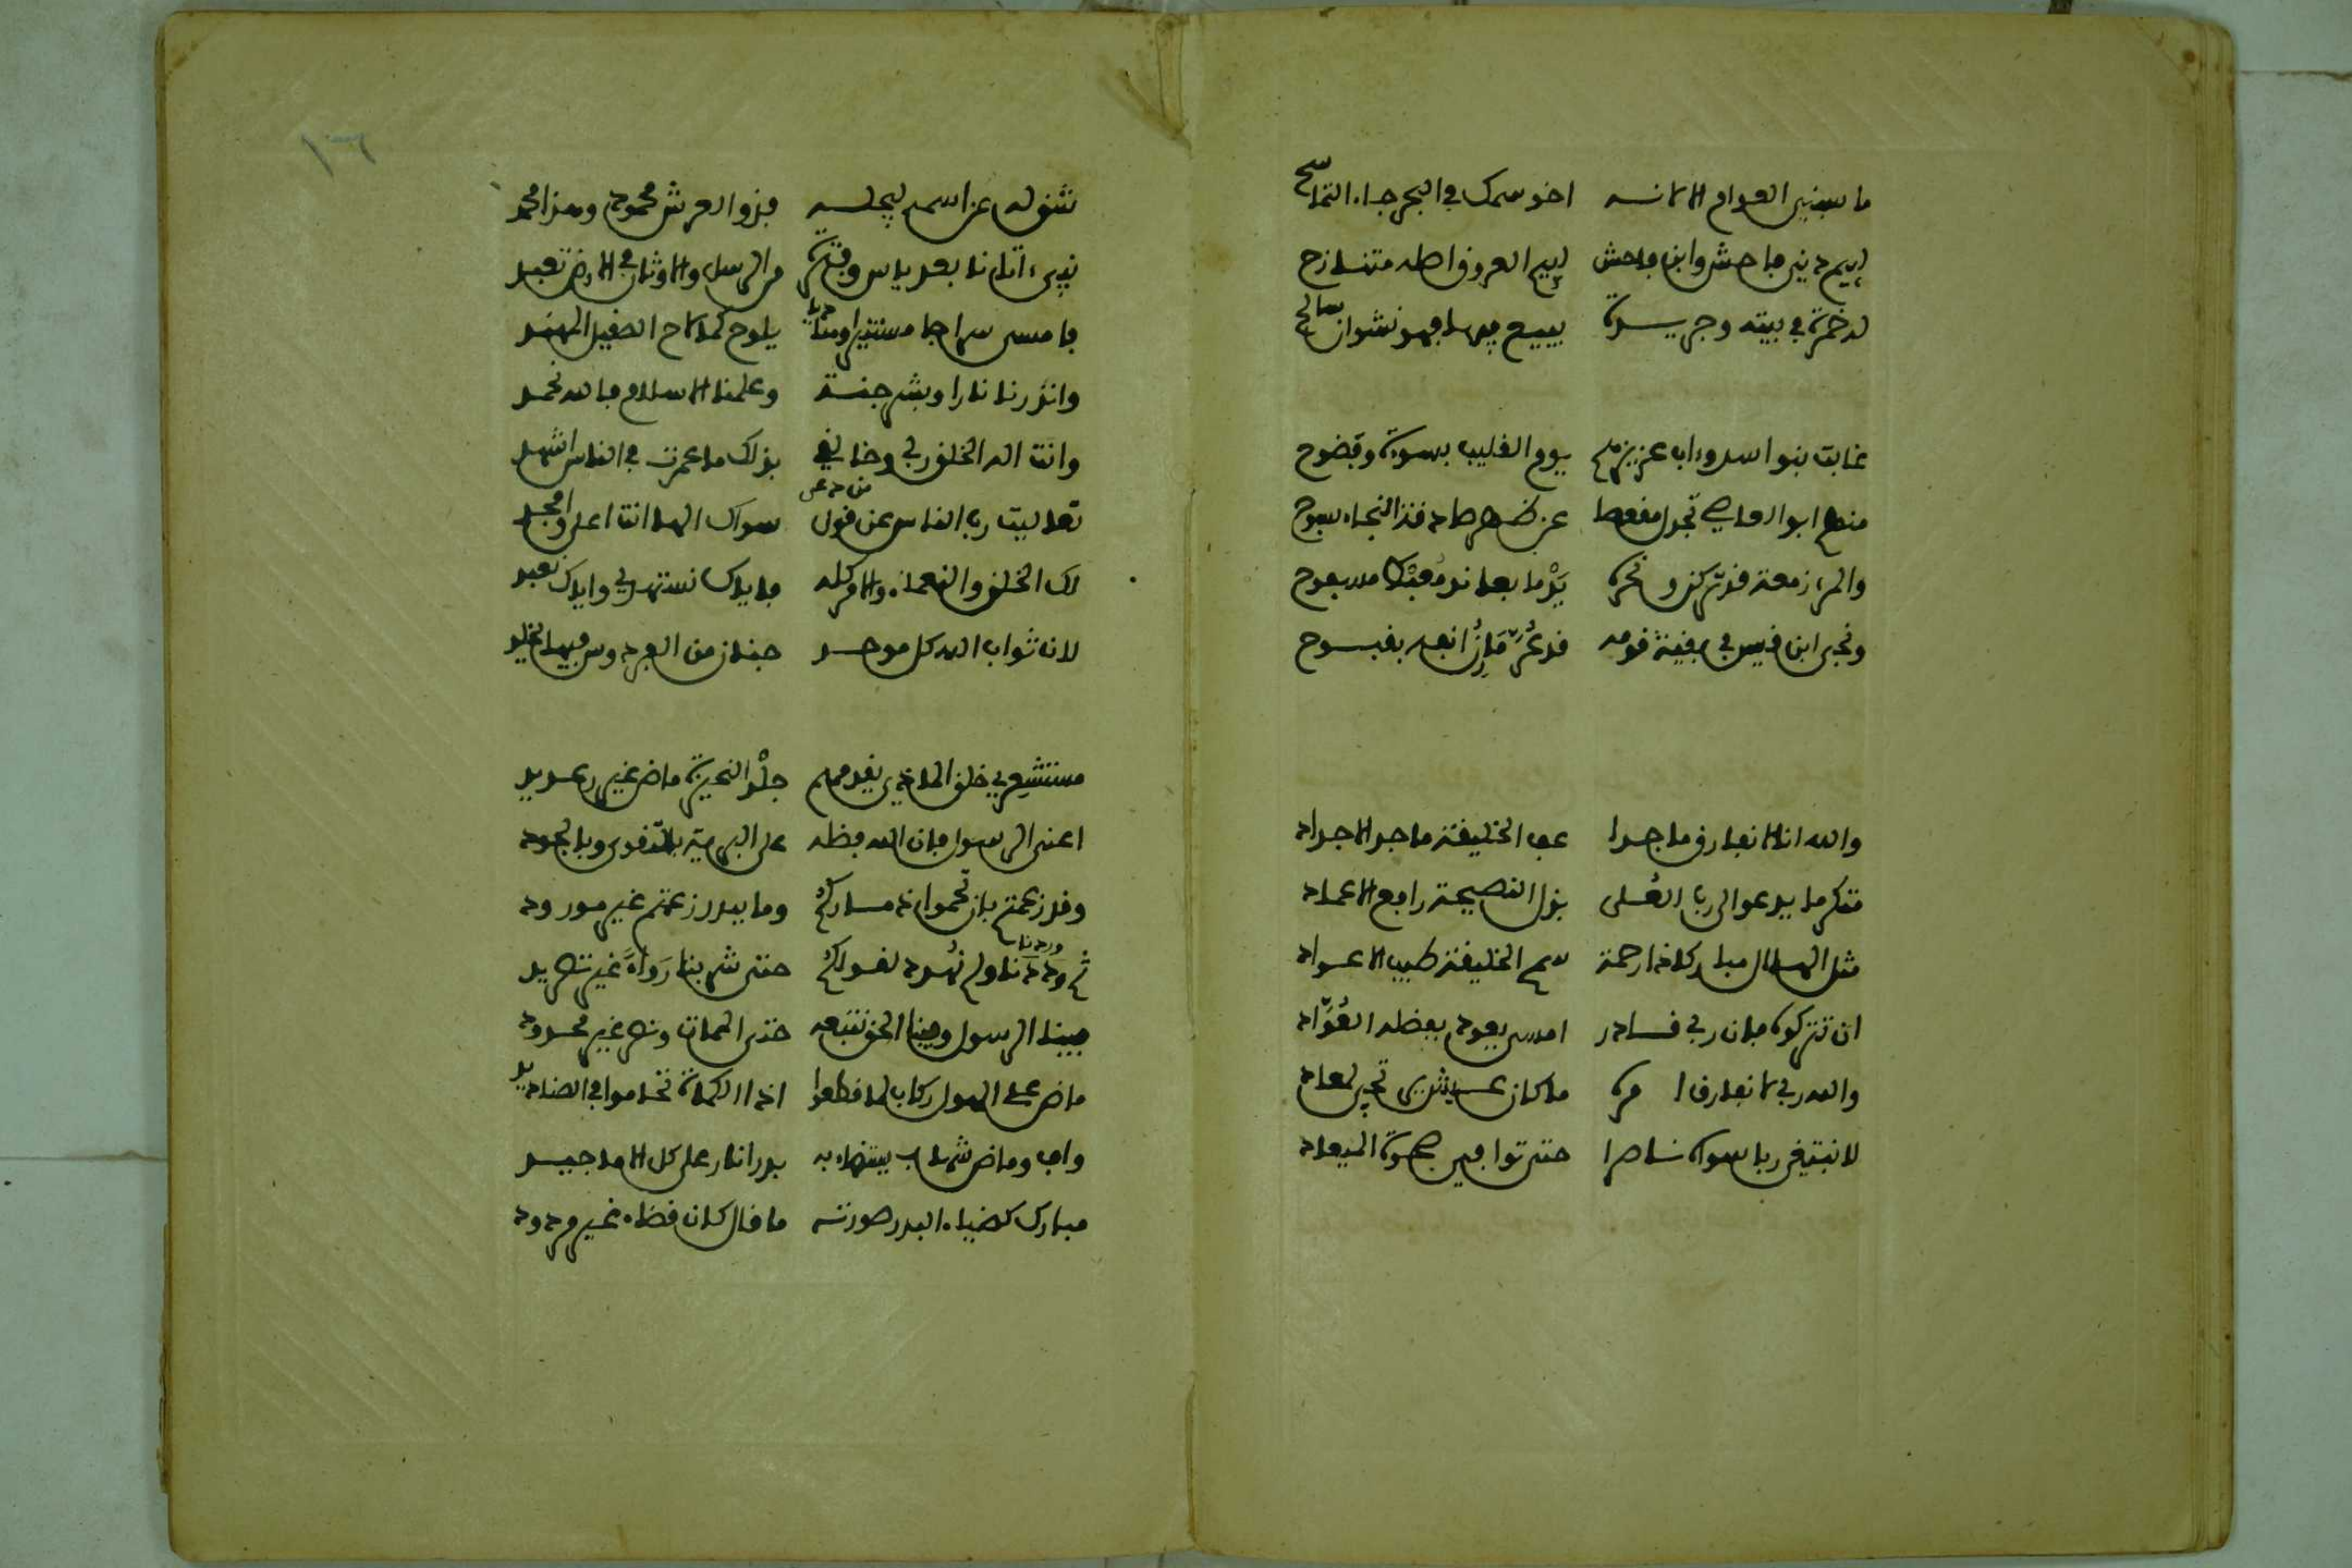 ما سبنى العوام الا لانه اخو سمك في البحر جاء التماسح
ليم دني فاحش وابن فاحش ليم العروق اصله متنازح
له خمرة في بيته وجريرة يبيع فيها فهو نشوان سالح
خابت بنو اسد واب عزيزهم يوم القليب بسوة وفضوح
منهم ابو العاصي تجدل مقعصا عن ظهر صادقة النجاء سبوح
والمرء زمعة قد تركن ونحره يدما بعاند معبط مسفوح
ونجى ابن قيس في بقية قومه قد عر مارن انفه بقبوح
والله انا لا نفارق ماجدا عف الخليفة ماجد الاجداد
متكرما يدعو الى رب العلى بذل النصيحة رافع الاعماد
مثل الهلال مباركا ذا رحمة سمح الخليفة طيب الاعواد
ان تتركوه فان ربي قادر امسى يعود بفضله العواد
والله ربي لا نفارق امره ما كان عيش يرتجى لمعاد
لا نبتغي ربا سواه ناصرا حتى توافي ضحوة الميعاد
١٦
شق له من اسمه ليجله فذو العرش محمود وهذا محمد
نبيء اتانا بعد ياس وفترة من الرسل والاوثان في الارض تعبد
فامسى سراجا مستنيرا وهاديا يلوح كما لاح الصقيل المهند
وانذرنا نارا وبشر جنة وعلمنا الاسلام فالله نحمد
وانت اله الخلق ربي وخالقي بذلك ما عمرت في الناس اشهد
تعاليت رب الناس عن قول من دعى سواك الها انت اعلى وامجد
لك الخلق والنعماء والامر كله فاياك نستهدي واياك نعبد
لان ثواب الله كل موحد جنان من الفردوس فيها يخلد
مستشعري حلق الماذي يقدمهم جلد النحيزة ماض غير رعديد
اعني الرسول فان الله فضله على البرية بالتقوى وبالجود
وقد زعمتم بان تحموا ذماركم وما بدر زعمتم غير مورود
ثم وردنا وردنا ولم نهدد لقولكم حتى شربنا رواء غير تصريد
فينا الرسول وفينا الحق نتبعه حتى الممات ونصر غير محدود
ماض على الهول ركاب لما قطعوا اذا الكماة تحاموا في الصناديد
واف وماض شهاب يستضاء به بدر انار على كل الاماجيد
مبارك كضياء البدر صورته ما قال كان قضاء غير مردود